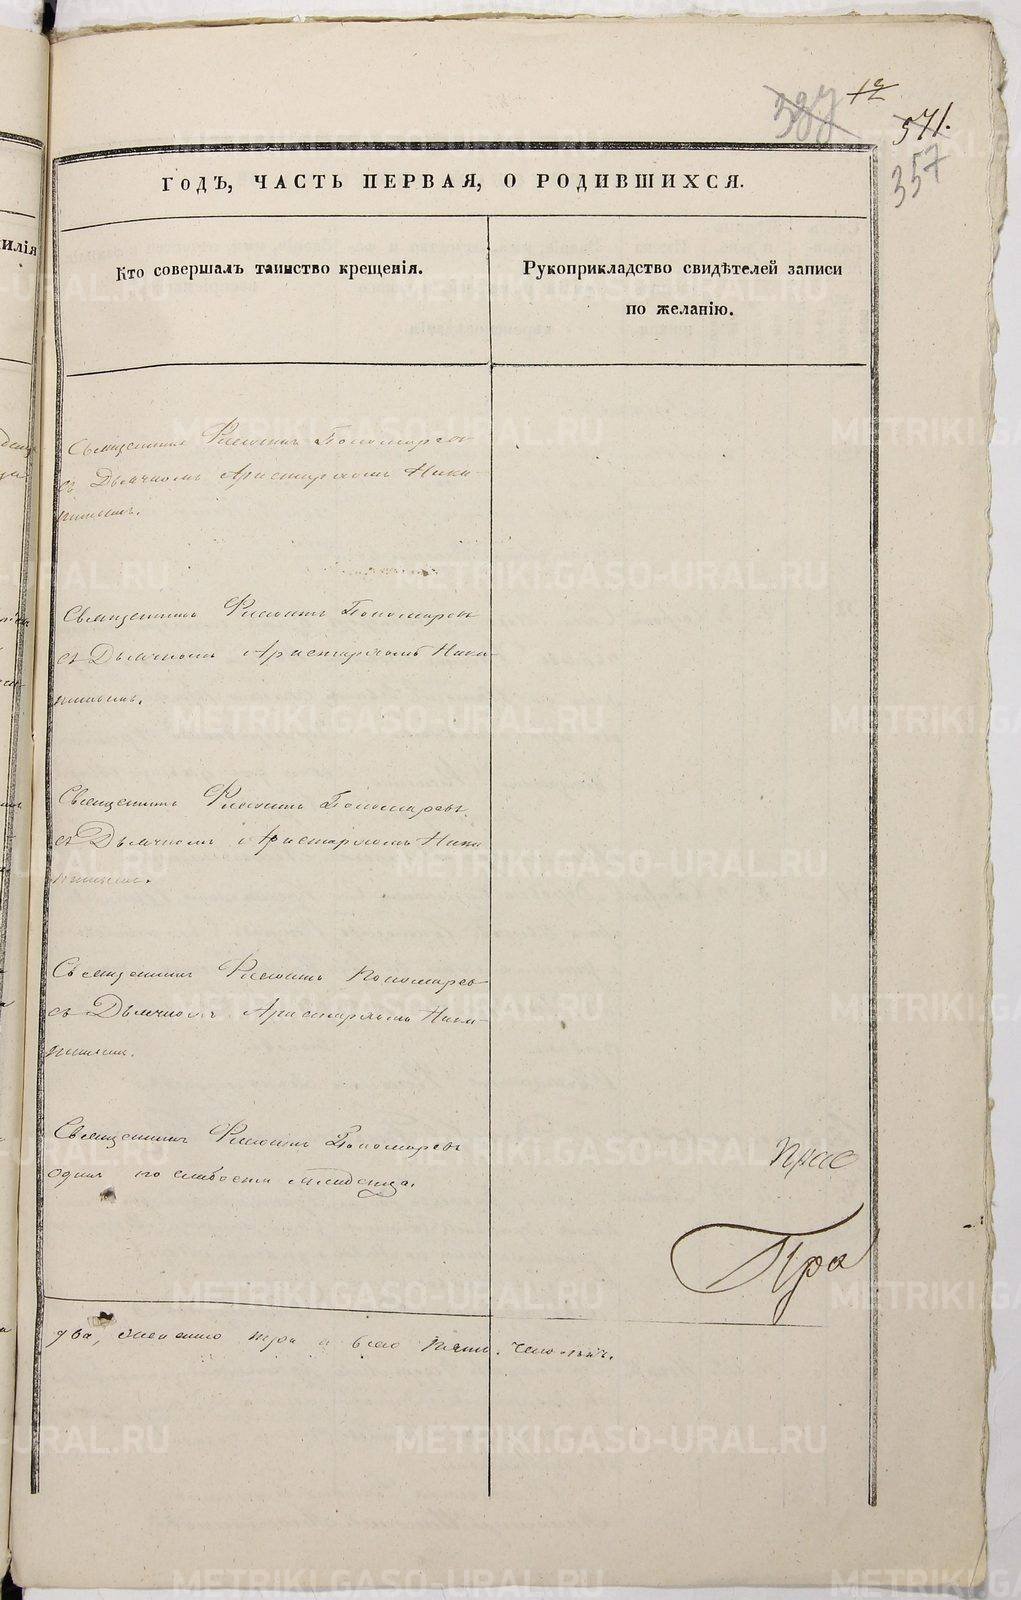 387
12
571.
357
ГОДЪ, ЧАСТЬ ПЕРВАЯ, О РОДИВШИХСЯ.
Кто совершалъ таинство крещенія.
Рукоприкладство свидѣтелей записи
по желанію.
Священникъ Филиппъ Пономаревъ
съ Дьячкомъ Аристархомъ Ники-
тинымъ.
Священникъ Филиппъ Пономаревъ
съ Дьячкомъ Аристархомъ Ники-
тинымъ.
Священникъ Филиппъ Пономаревъ
съ Дьячкомъ Аристархомъ Ники
тинымъ.
Священникъ Филиппъ Пономаревъ
съ Дьячкомъ Аристархомъ Ники-
тинымъ.
Священникъ Филиппъ Пономаревъ
одинъ по слабости младенца.
Пра
два, женска три а всего пять человѣкъ.
METRIKI.GASO-URAL.RU